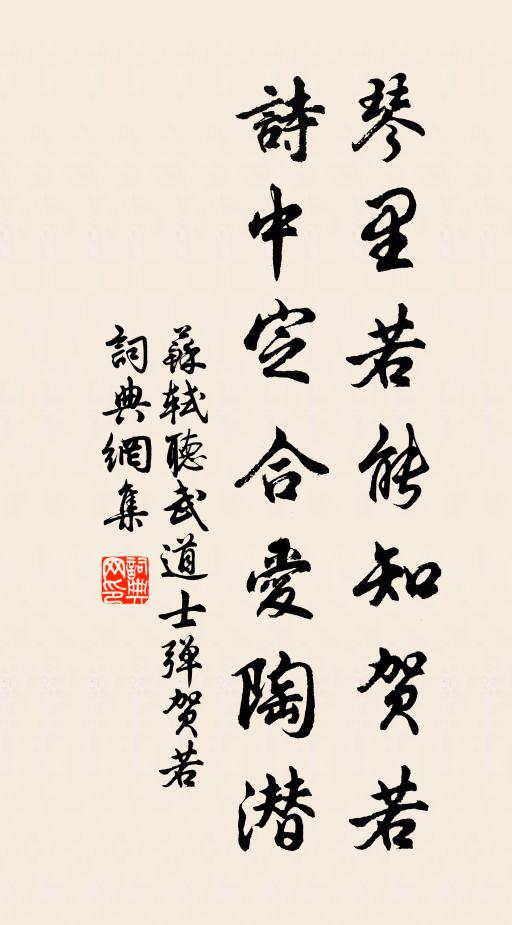 琴里若能知贺若
詩中定合愛陶潜
蘇軾聽武道士弹贺若
詞典網集
詞典网印